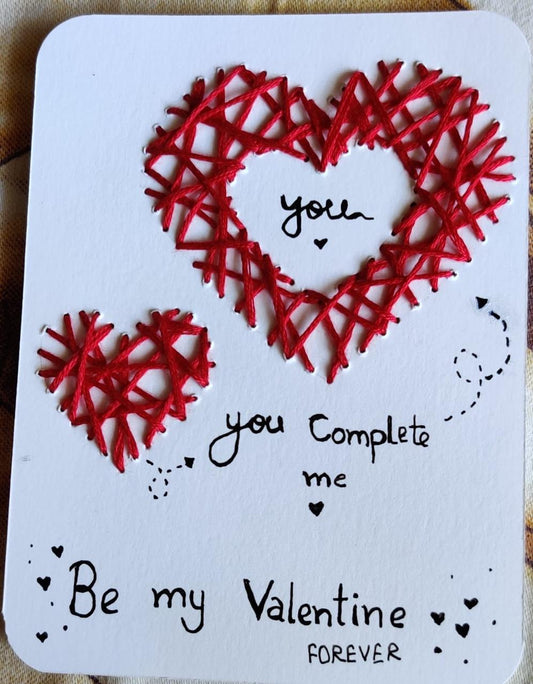 you
you Complete
me
Be my Valentine
FOREVER